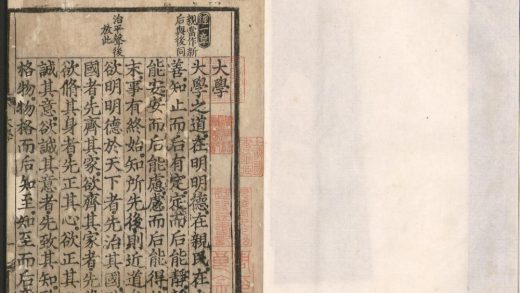 經一章
親當作新
后與後同
治平聲後
放此
大學
大學之道在明明德在親民在
善知止而后有定定而后能靜
能安安而后能慮慮而后能得
末事有終始知所先後則近道
欲明明德於天下者先治其國
國者先齊其家欲齊其家者先
欲脩其身者先正其心欲正其
誠其意欲誠其意者先致其知
格物物格而后知至知至而后